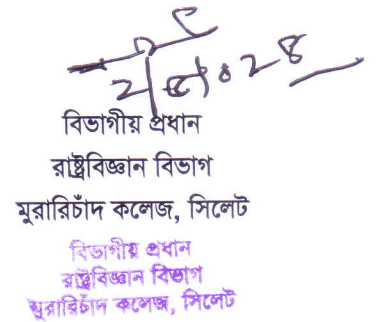 বিভাগীয় প্রধান
রাষ্ট্রবিজ্ঞান বিভাগ
মুরারিচাঁদ কলেজ, সিলেট
বিভাগীয় প্রধান
রাষ্ট্রবিজ্ঞান বিভাগ
মুরারিচাঁদ কলেজ, সিলেট